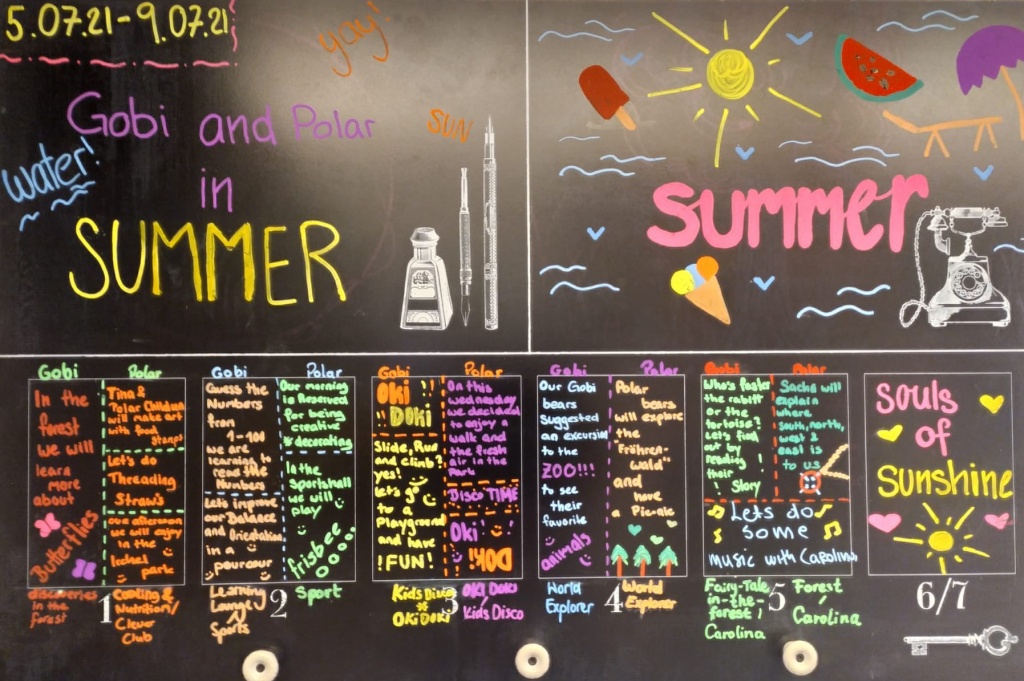 5.07.21-9.07.21
yay!
Gobi and Polar
SUN
water!
in
SUMMER
summer
Gobi
In the
forest
we will
learn
more
about
Butterflies
discoveries
in the
forest
Polar
Tina &
Polar Children
will make art
with food
stamps
Let's do
Threading
Straws
our afternoon
we will enjoy
in the
park
Cooking &
Nutrition/
Clever
Club
1
Gobi
Guess the
Numbers
from
1-100
we are
learning to
read the
Numbers
Let's improve
our Balance
and Orientation
in a
parcour
Learning
Lounge/
Sports
Polar
Our morning
is Reserved
for being
creative
& decorating
In the
Sportshall
we will
play
frisbee
Sport
2
Gobi
Oki
DOKi
Slide, Run
and climb?
yes!
let's go
to a
Playground
and have
!FUN!
Kids Disco
&
Oki Doki
Polar
On this
wednesday
we decided
to enjoy a
walk and
the fresh
air in the
Park
Disco TIME
Oki
DOKI
Oki Doki
/
Kids Disco
3
Gobi
Our Gobi
bears
Suggested
an excursion
to the
ZOO!!!
to see
their
favorite
animals
World
Explorer
Polar
Polar
bears
will explore
the
"Föhren-
wald"
and
have
a Picnic
World
Explorer
4
Gobi
Who's faster
the rabbit
or the
tortoise?
Let's find
out by
reading
their
! Story
Polar
Sacha will
explain
where
south, north,
west &
east is
to us
Lets do
Some
music with Carolina
Fairy-Tale
in-the-
forest/
Carolina
5
Forest
/
Carolina
souls
of
Sunshine
6/7